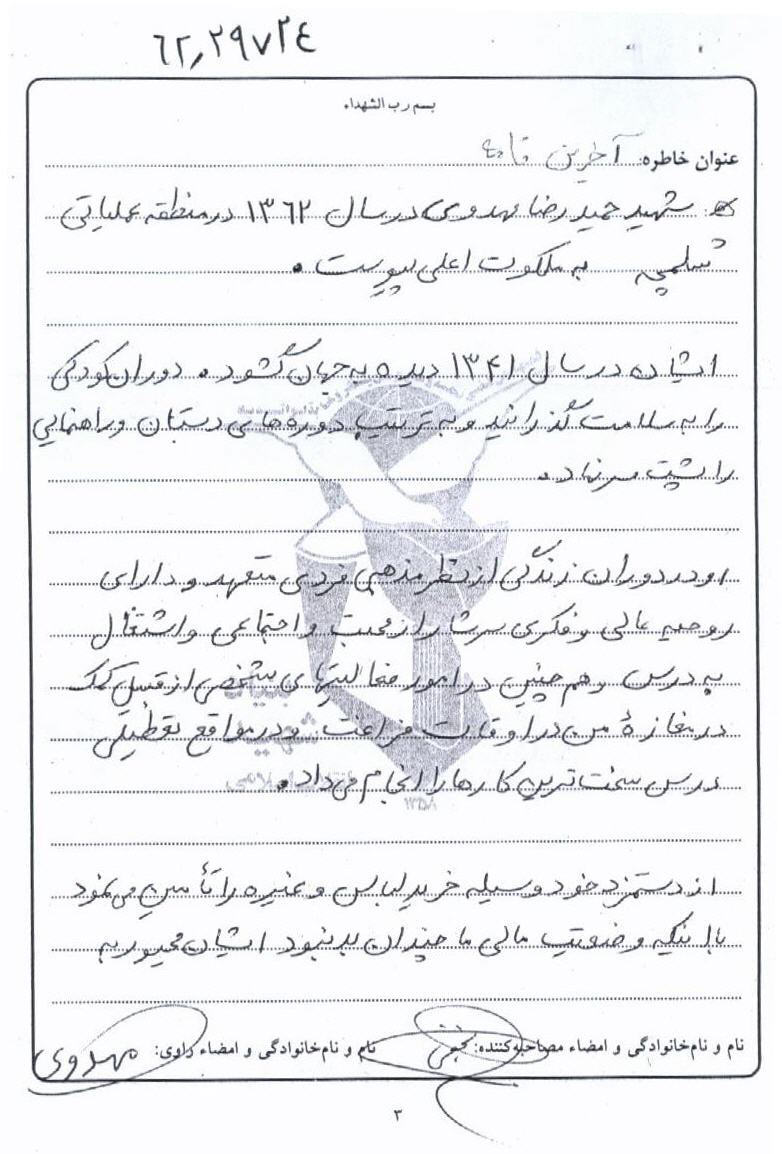 ۶۲٫۲۹۷۲۴
بسم رب الشهداء
عنوان خاطره: آخرین
شهید حمید رضا مهدوی در سال ۱۳۶۲ در منطقه عملیاتی
شلمچه به ملکوت اعلی پیوست.
ایشان در سال ۱۳۴۱ دیده به جهان گشود. دوران کودکی
را به سلامت گذرانید و به ترتیب دوره های دبستان و راهنمایی
را پشت سر نهاد.
او در دوران زندگی از نظر مذهبی فردی متعهد و دارای
روحیه عالی و فکری سرشار از محبت و اجتماعی و اشتغال
به درس و هم چنین در امور فعالیتهای شخصی از قبیل کمک
در مغازهٔ من در اوقات فراغت و در مواقع تعطیلی
درس سخت ترین کارها را انجام می داد.
از دستمزد خود وسیله خرید لباس و غیره را تأمین می نمود
با اینکه وضعیت مالی ما چندان بد نبود ایشان مجبور به
نام و نام خانوادگی و امضاء مصاحبه کننده:
نام و نام خانوادگی و امضاء راوی: مهدوی
۳